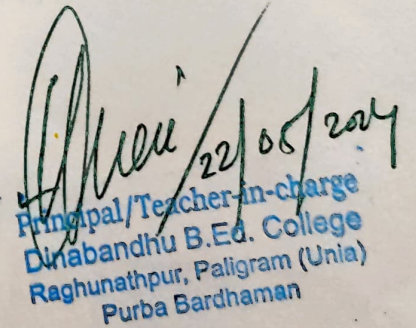 22/05/2024
Principal/Teacher-in-charge
Dinabandhu B.Ed. College
Raghunathpur, Paligram (Unia)
Purba Bardhaman